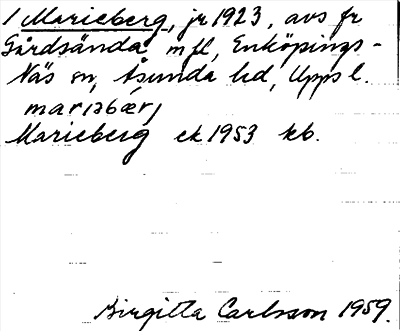 1 Marieberg, jr 1923, avs fr
Gårdsända mfl, Enköpings-
Näs sn, Åsunda hd, Upps l.
mariabærj
Marieberg ek 1953 kb.
Birgitta Carlsson 1959.